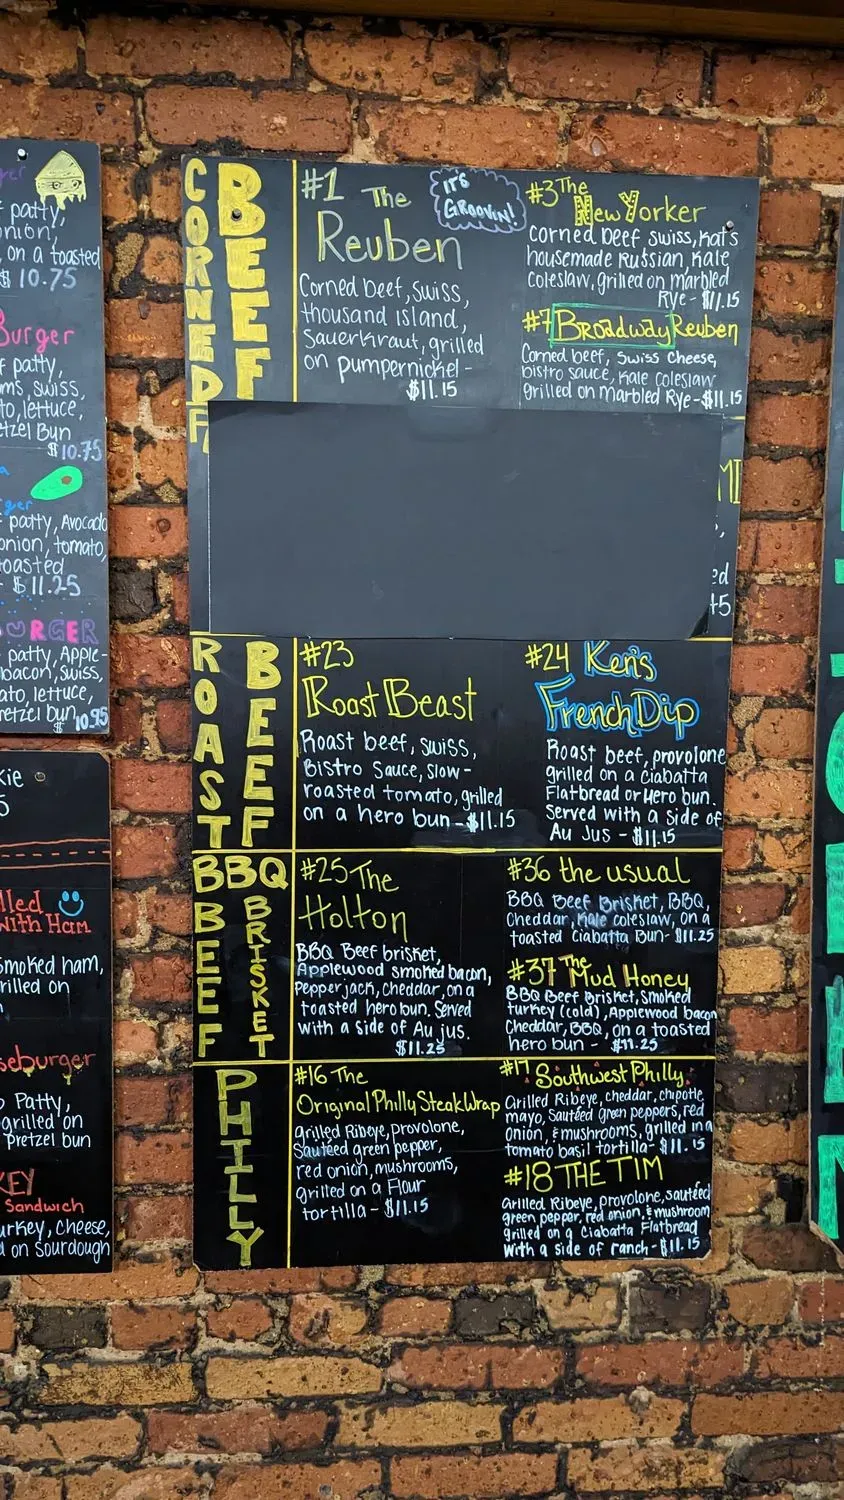 patty,
onion,
on a toasted
$ 10.75
Burger
patty,
swiss,
lettuce,
Bun
$10.75
patty, Avocado
onion, tomato,
toasted
$11.25
BURGER
patty, Apple-
bacon, swiss,
lettuce,
pretzel bun
$10.95
with Ham
smoked ham,
grilled on
Patty,
grilled on
Pretzel bun
Sandwich
Turkey, cheese,
on Sourdough
CORNED
BEEF
#1 The
Reuben
IT'S
GROOVIN!
Corned beef, swiss,
thousand island,
sauerkraut, grilled
on pumpernickel -
$11.15
#3 The
New Yorker
Corned beef swiss, Kat's
housemade Russian, Kale
Coleslaw, grilled on marbled
Rye - $11.15
#7 Broadway Reuben
Corned beef, Swiss cheese,
bistro sauce, Kale coleslaw
grilled on Marbled Rye - $11.15
ROAST
BEEF
#23
Roast Beast
Roast beef, swiss,
Bistro Sauce, slow-
roasted tomato, grilled
on a hero bun - $11.15
#24 Ken's
French Dip
Roast beef, provolone
grilled on a Ciabatta
Flatbread or Hero bun.
Served with a side of
Au Jus - $11.15
BBQ
BEEF
BRISKET
#25 The
Holton
BBQ Beef brisket,
Applewood smoked bacon,
Pepperjack, cheddar, on a
toasted hero bun. Served
with a side of Au jus.
$11.25
#36 the usual
BBQ Beef Brisket, BBQ,
Cheddar, Kale coleslaw, on a
toasted Ciabatta Bun - $11.25
#37 The Mud Honey
BBQ Beef Brisket, Smoked
turkey (cold), Applewood bacon
Cheddar, BBQ, on a toasted
hero bun - $11.25
PHILLY
#16 The
Original Philly Steak Wrap
grilled Ribeye, provolone,
Sautéed green pepper,
red onion, mushrooms,
grilled on a Flour
tortilla - $11.15
#17 Southwest Philly
Grilled Ribeye, cheddar, chipotle
mayo, Sautéed green peppers, red
onion, & mushrooms, grilled in a
tomato basil tortilla - $11.15
#18 THE TIM
Grilled Ribeye, provolone, sautéed
green pepper, red onion, & mushroom
grilled on a Ciabatta Flatbread
with a side of ranch - $11.15